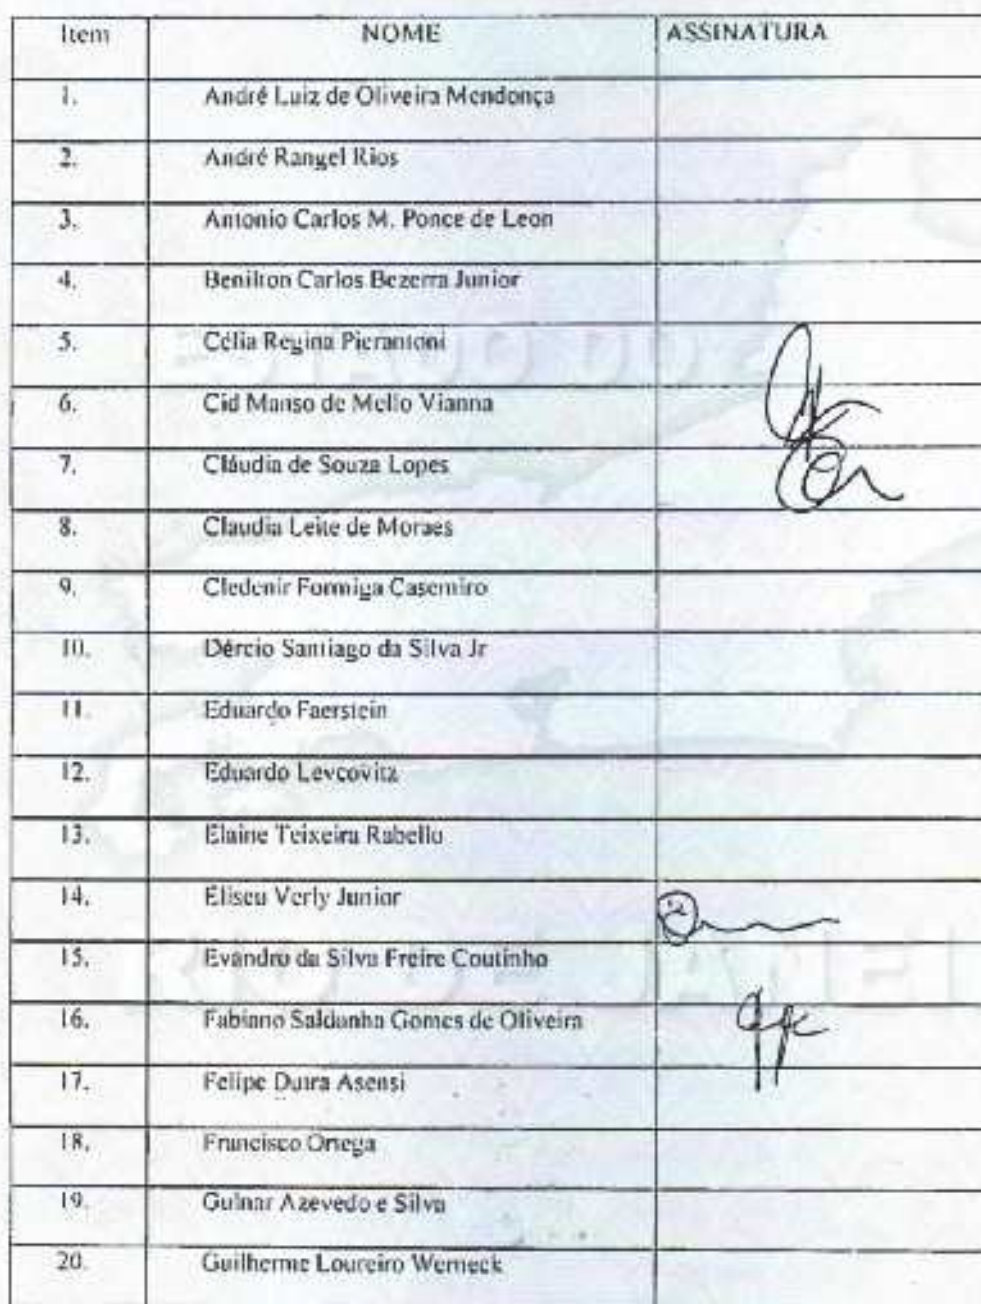 Item NOME ASSINATURA
1. André Luiz de Oliveira Mendonça
2. André Rangel Rios
3. Antonio Carlos M. Ponce de Leon
4. Benilton Carlos Bezerra Junior
5. Célia Regina Pierantoni
6. Cid Manso de Mello Vianna
7. Cláudia de Souza Lopes
8. Claudia Leite de Moraes
9. Cledenir Formiga Casemiro
10. Dércio Santiago da Silva Jr
11. Eduardo Faerstein
12. Eduardo Levcovitz
13. Elaine Teixeira Rabello
14. Eliseu Verly Junior
15. Evandro da Silva Freire Coutinho
16. Fabiano Saldanha Gomes de Oliveira
17. Felipe Dutra Asensi
18. Francisco Ortega
19. Gulnar Azevedo e Silva
20. Guilherme Loureiro Werneck